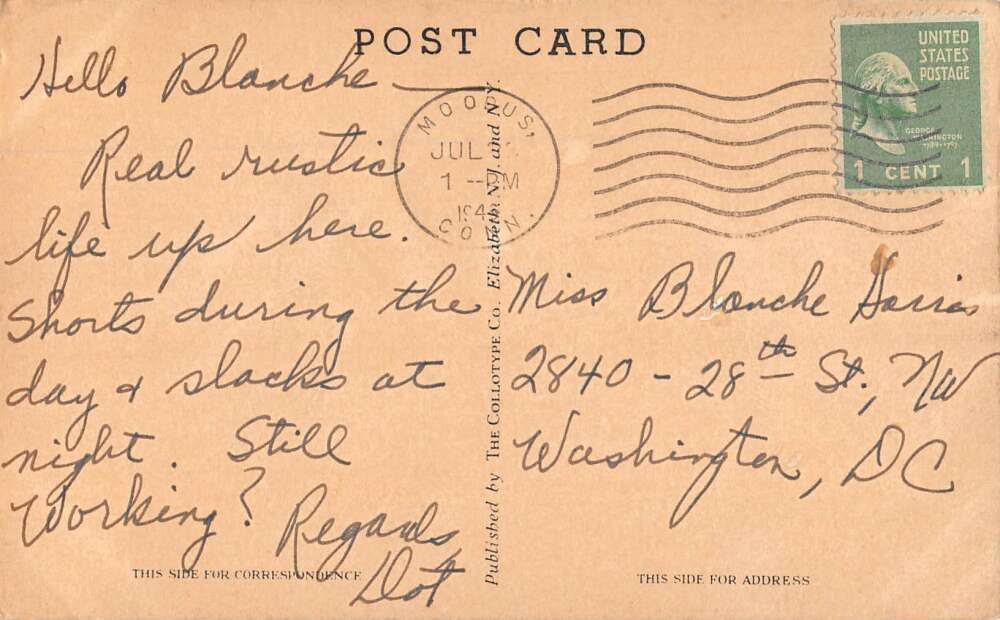 POST CARD
UNITED
STATES
POSTAGE
GEORGE
WASHINGTON
1789-1797
1 CENT 1
MOODUS,
JUL
1 -PM
194
CONN.
Hello Blanche —
Real rustic
life up here.
Shorts during the
day & slacks at
night. Still
Working?
Regards
Dot
Published by THE COLLOTYPE CO., Elizabeth, N.J. and N.Y.
Miss Blanche Harris
2840 - 28th St., NW
Washington, DC
THIS SIDE FOR CORRESPONDENCE
THIS SIDE FOR ADDRESS